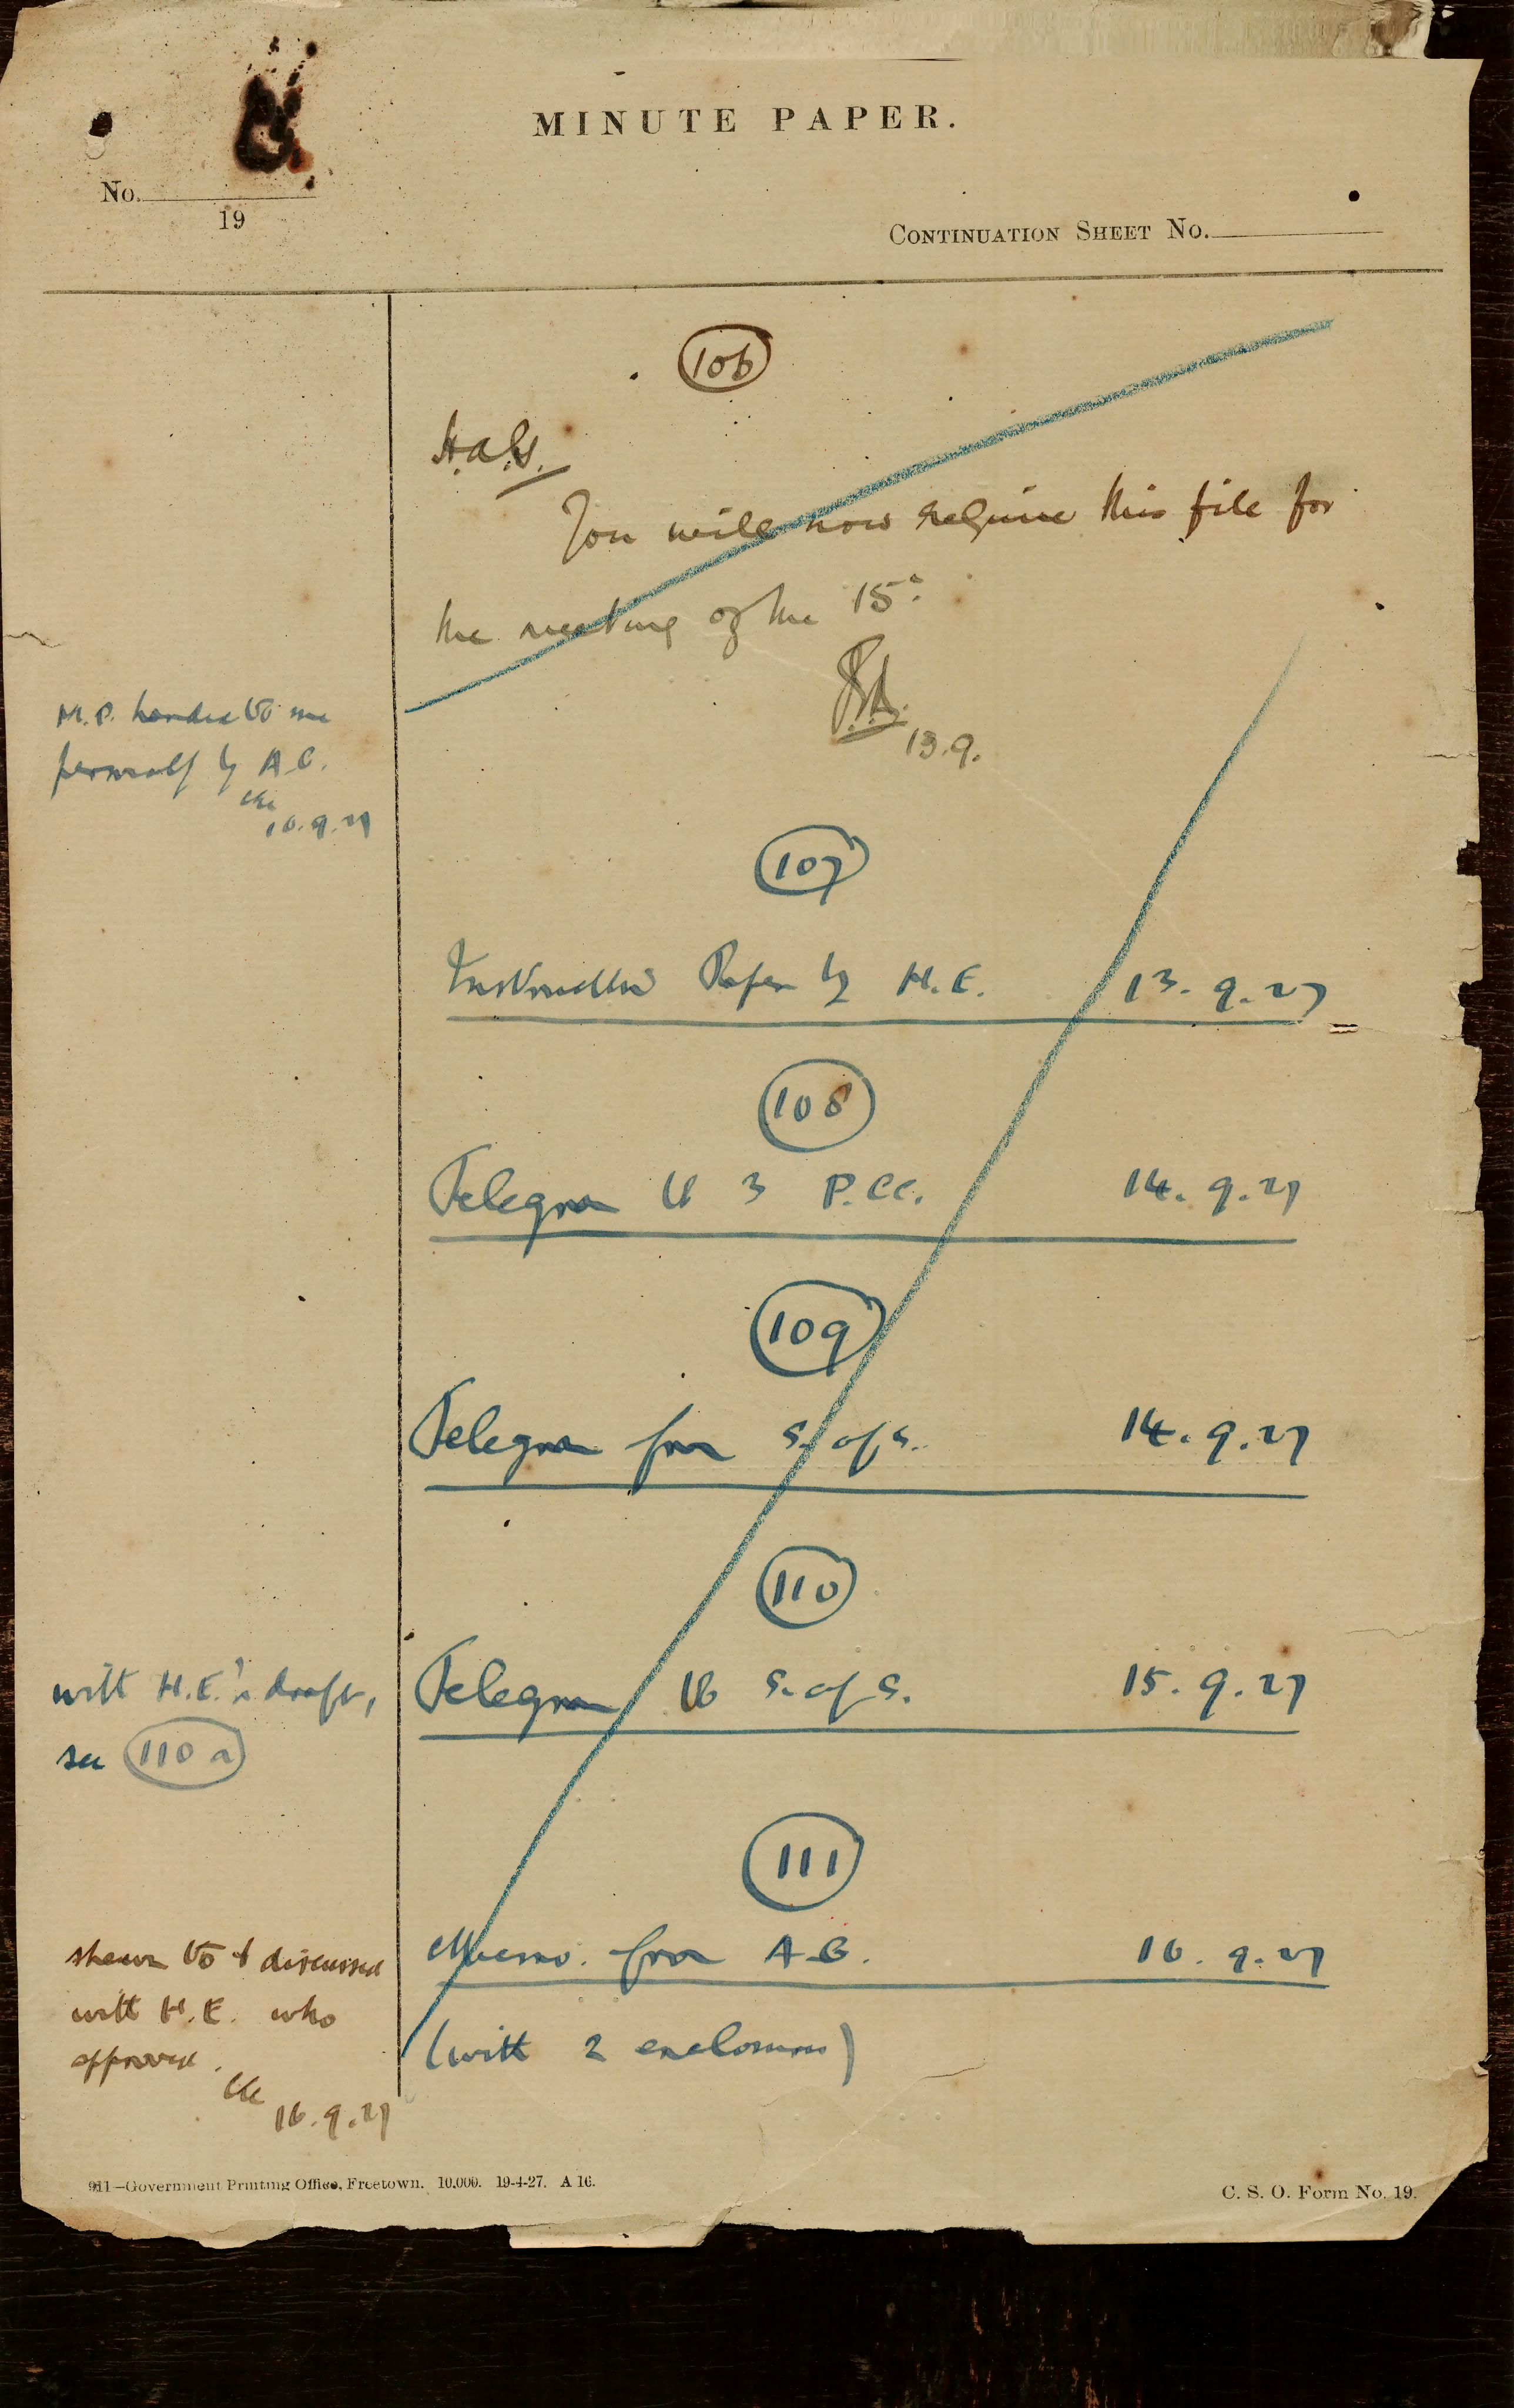 MINUTE PAPER.
No.
19
CONTINUATION SHEET No.
106
H.a.l.s.
You will now require this file for
the meeting of the 15th
13.9.
M.P. handed to me
personally by A.C.
16.9.27
107
Instruction Paper by H.E. 13.9.27
108
Telegram to 3 P.CC. 14.9.27
109
Telegram from S. of S. 14.9.27
110
with H.E.'s draft,
see 110a
Telegram to S. of S. 15.9.27
111
Memo. from A.G. 16.9.27
(with 2 enclosures)
shewn to & discussed
with H.E. who
approved.
16.9.27
911—Government Printing Office, Freetown. 10,000. 19-4-27. A 16.
C. S. O. Form No. 19.